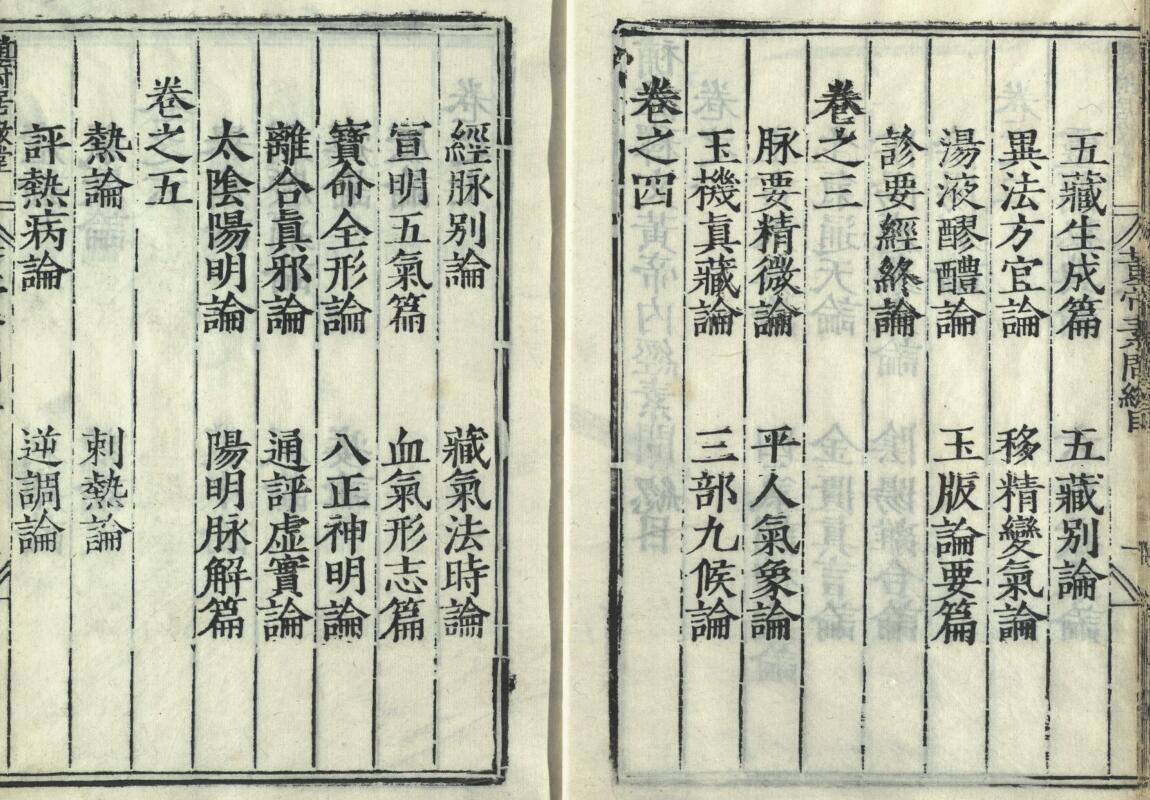 五藏生成篇　五藏別論
異法方宜論　移精變氣論
湯液醪醴論　玉版論要篇
診要經終論
卷之三
脉要精微論　平人氣象論
玉機真藏論　三部九候論
卷之四
經脉別論　藏氣法時論
宣明五氣篇　血氣形志篇
寶命全形論　八正神明論
離合眞邪論　通評虛實論
太陰陽明論　陽明脉解篇
卷之五
熱論　刺熱論
評熱病論　逆調論